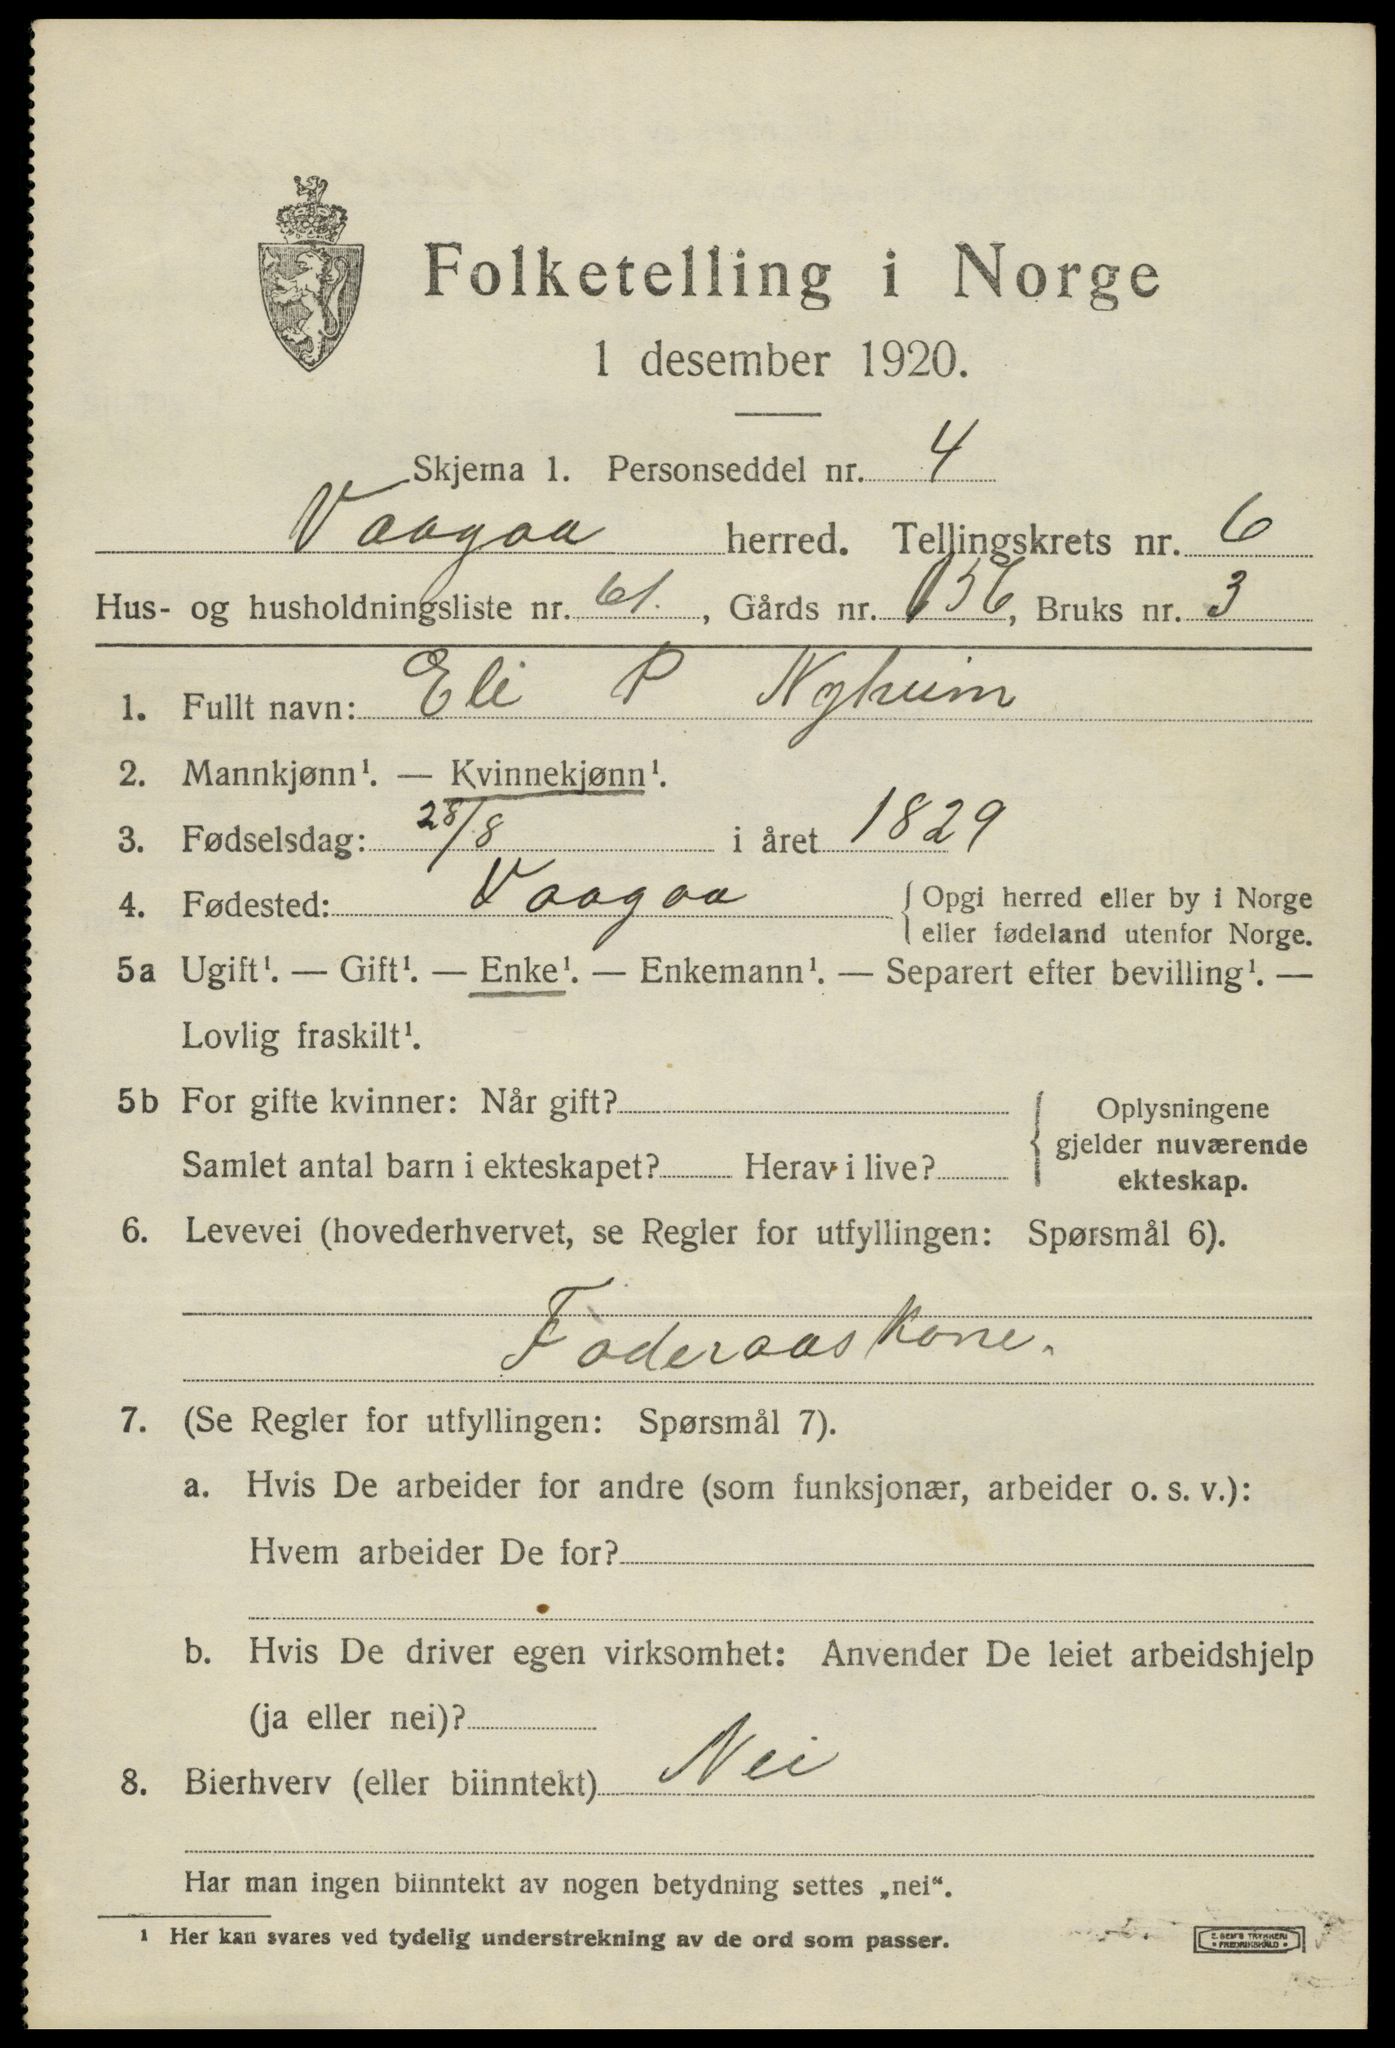 Folketelling i Norge
1 desember 1920.
Skjema 1. Personseddel nr. 4
Vaagaa herred. Tellingskrets nr. 6
Hus- og husholdningsliste nr. 61., Gårds nr. 156, Bruks nr. 3
1. Fullt navn: Eli P Nyheim
2. Mannkjønn¹. — Kvinnekjønn¹.
3. Fødselsdag: 28/8 i året 1829
4. Fødested: Vaagaa { Opgi herred eller by i Norge
eller fødeland utenfor Norge.
5a Ugift¹. — Gift¹. — Enke¹. — Enkemann¹. — Separert efter bevilling¹. —
Lovlig fraskilt¹.
5b For gifte kvinner: Når gift? { Oplysningene
gjelder nuværende
Samlet antal barn i ekteskapet? Herav i live? ekteskap.
6. Levevei (hovederhvervet, se Regler for utfyllingen: Spørsmål 6).
Føderaaskone.
7. (Se Regler for utfyllingen: Spørsmål 7).
a. Hvis De arbeider for andre (som funksjonær, arbeider o. s. v.):
Hvem arbeider De for?
b. Hvis De driver egen virksomhet: Anvender De leiet arbeidshjelp
(ja eller nei)?
8. Bierhverv (eller biinntekt) Nei
Har man ingen biinntekt av nogen betydning settes „nei“.
¹ Her kan svares ved tydelig understrekning av de ord som passer.
E. SEM'S TRYKKERI
• FREDRIKSHALD •